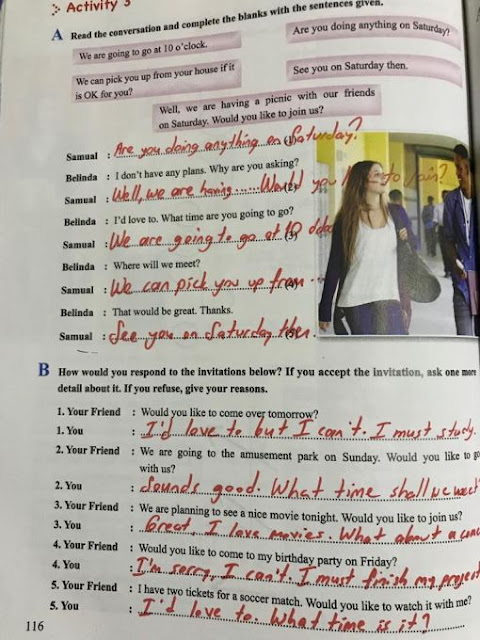 Activity 3
A Read the conversation and complete the blanks with the sentences given.
We are going to go at 10 o'clock.
Are you doing anything on Saturday?
We can pick you up from your house if it
is OK for you?
See you on Saturday then.
Well, we are having a picnic with our friends
on Saturday. Would you like to join us?
Samual : Are you doing anything on Saturday? (1)
Belinda : I don't have any plans. Why are you asking?
Samual : Well, we are having ...... Would you to join? (2)
Belinda : I'd love to. What time are you going to go?
Samual : We are going to go at 10 (3)
Belinda : Where will we meet?
Samual : We can pick you up from ... (4)
Belinda : That would be great. Thanks.
Samual : See you on Saturday then. (5)
B How would you respond to the invitations below? If you accept the invitation, ask one more
detail about it. If you refuse, give your reasons.
1. Your Friend : Would you like to come over tomorrow?
1. You : I'd love to but I can't. I must study.
2. Your Friend : We are going to the amusement park on Sunday. Would you like to go
with us?
2. You : Sounds good. What time shall we meet
3. Your Friend : We are planning to see a nice movie tonight. Would you like to join us?
3. You : Great, I love movies. What about a
4. Your Friend : Would you like to come to my birthday party on Friday?
4. You : I'm sorry, I can't. I must finish my project
5. Your Friend : I have two tickets for a soccer match. Would you like to watch it with me?
5. You : I'd love to. What time is it?
116